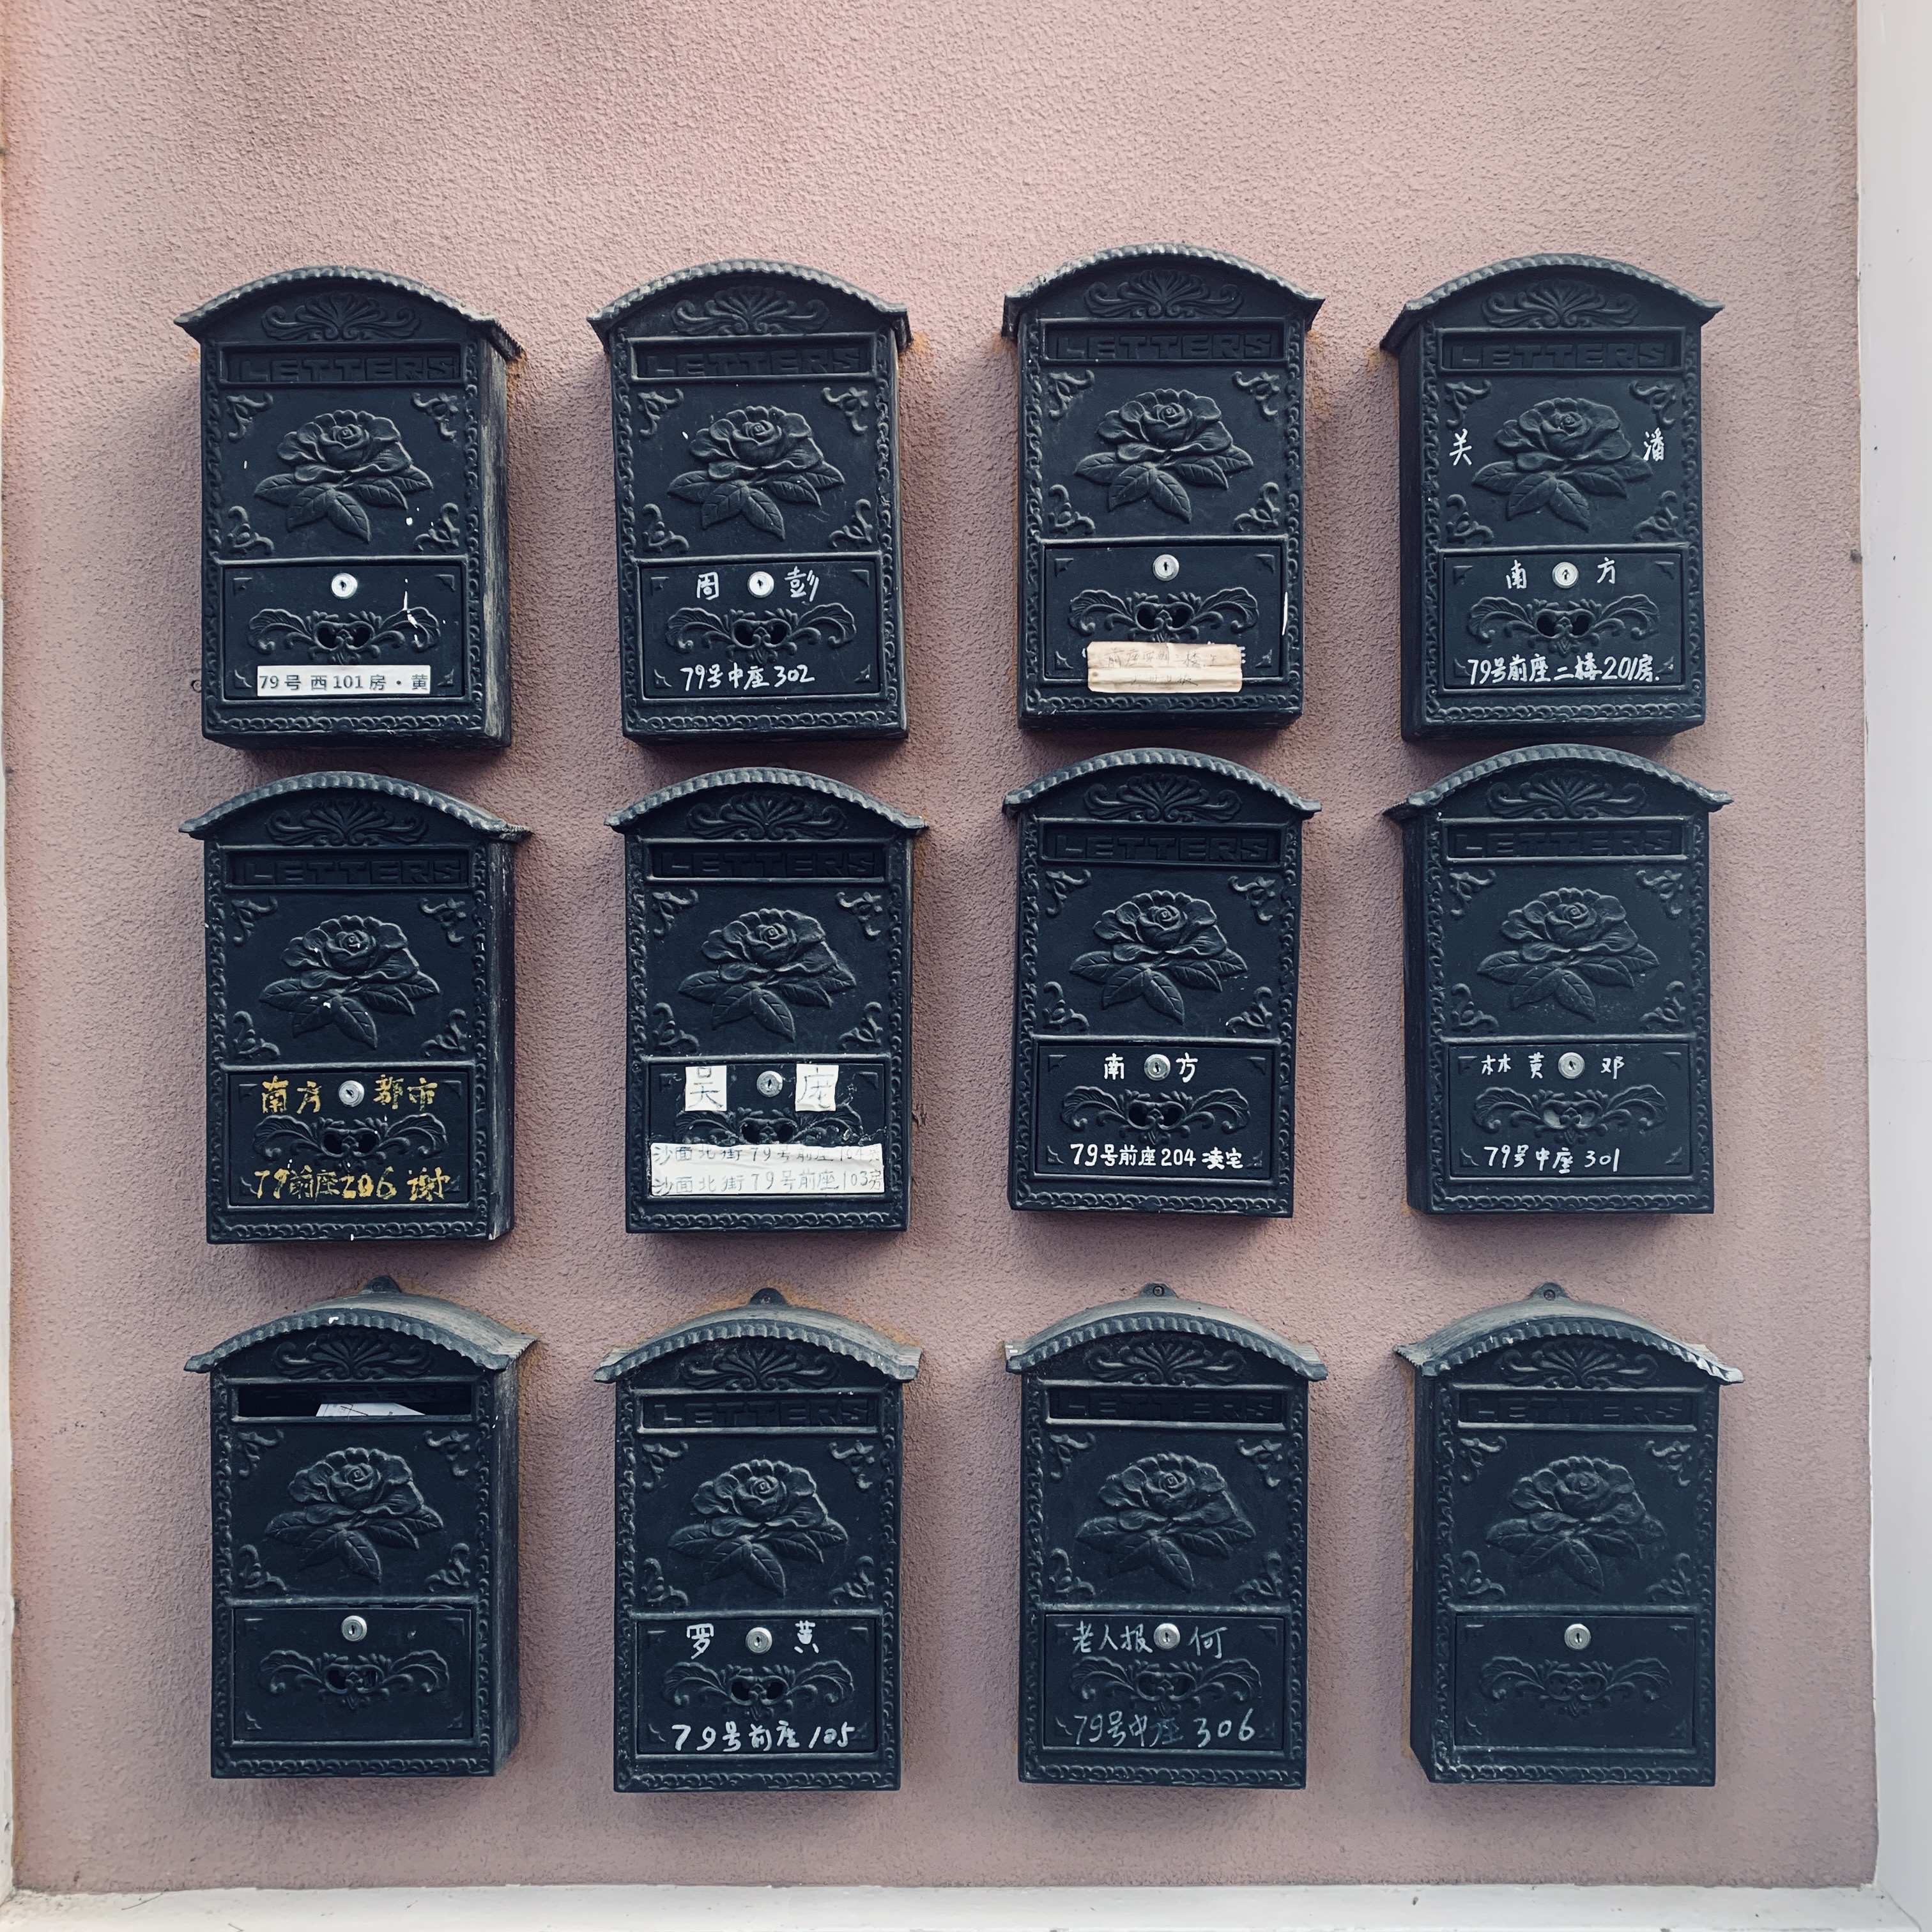 LETTERS
79号西101房·黄
LETTERS
周 彭
79号中座302
LETTERS
前座
LETTERS
关 潘
南方
79号前座二楼201房.
LETTERS
南方都市
79前座206 谢
LETTERS
吴 庞
沙面北街79号前座104房
沙面北街79号前座103房
LETTERS
南方
79号前座204 凑宅
LETTERS
林黄邓
79号中座301
LETTERS
罗 黄
79号前座105
LETTERS
老人报 何
79号中座306
LETTERS